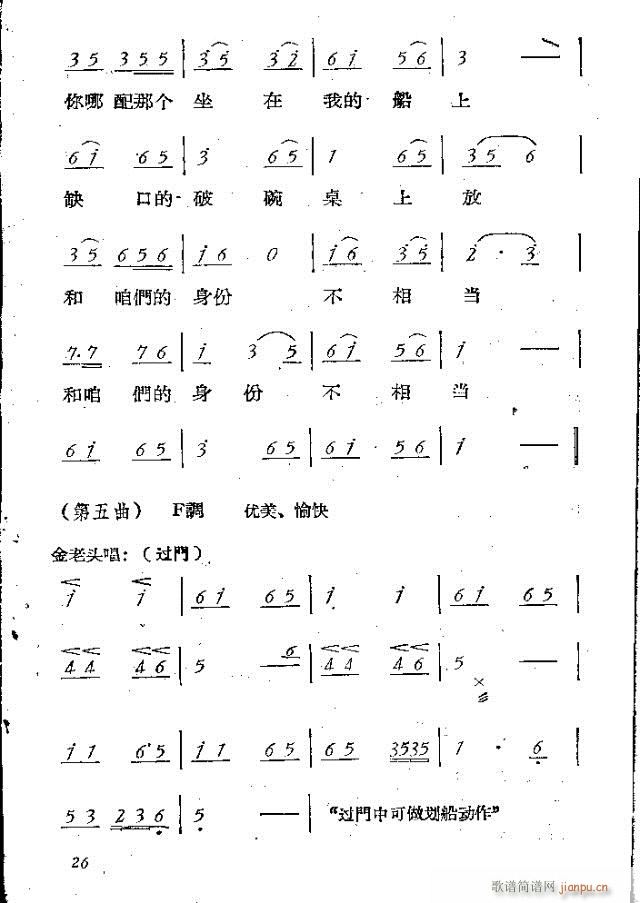 3 5 3 5 5 | 3 5 3 2 | 6 1 5 6 | 3 — |
你哪 配那个 坐 在 我的 船 上
6 1 6 5 | 3 6 5 | 1 6 5 | 3 5 6
缺 口的 破 碗 桌 上 放
3 5 6 5 6 | 1 6 0 | 1 6 3 5 | 2 · 3 |
和 咱們的 身份 不 相 当
7·7 7 6 | 1 3 5 | 6 1 5 6 | 1 — |
和咱 們的 身 份 不 相 当
6 1 6 5 | 3 6 5 | 6 1 5 6 | 1 — ‖
(第五曲) F調 优美、愉快
金老头唱:(过門)
1 1 | 6 1 6 5 | 1 1 | 6 1 6 5 |
4 4 4 6 | 5 — 6 | 4 4 4 6 | 5 — |
1 1 6·5 | 1 1 6 5 | 6 5 3535 | 1 · 6 |
5 3 2 3 6 | 5 — | “过門中可做划船动作”
26
歌谱简谱网 jianpu.cn